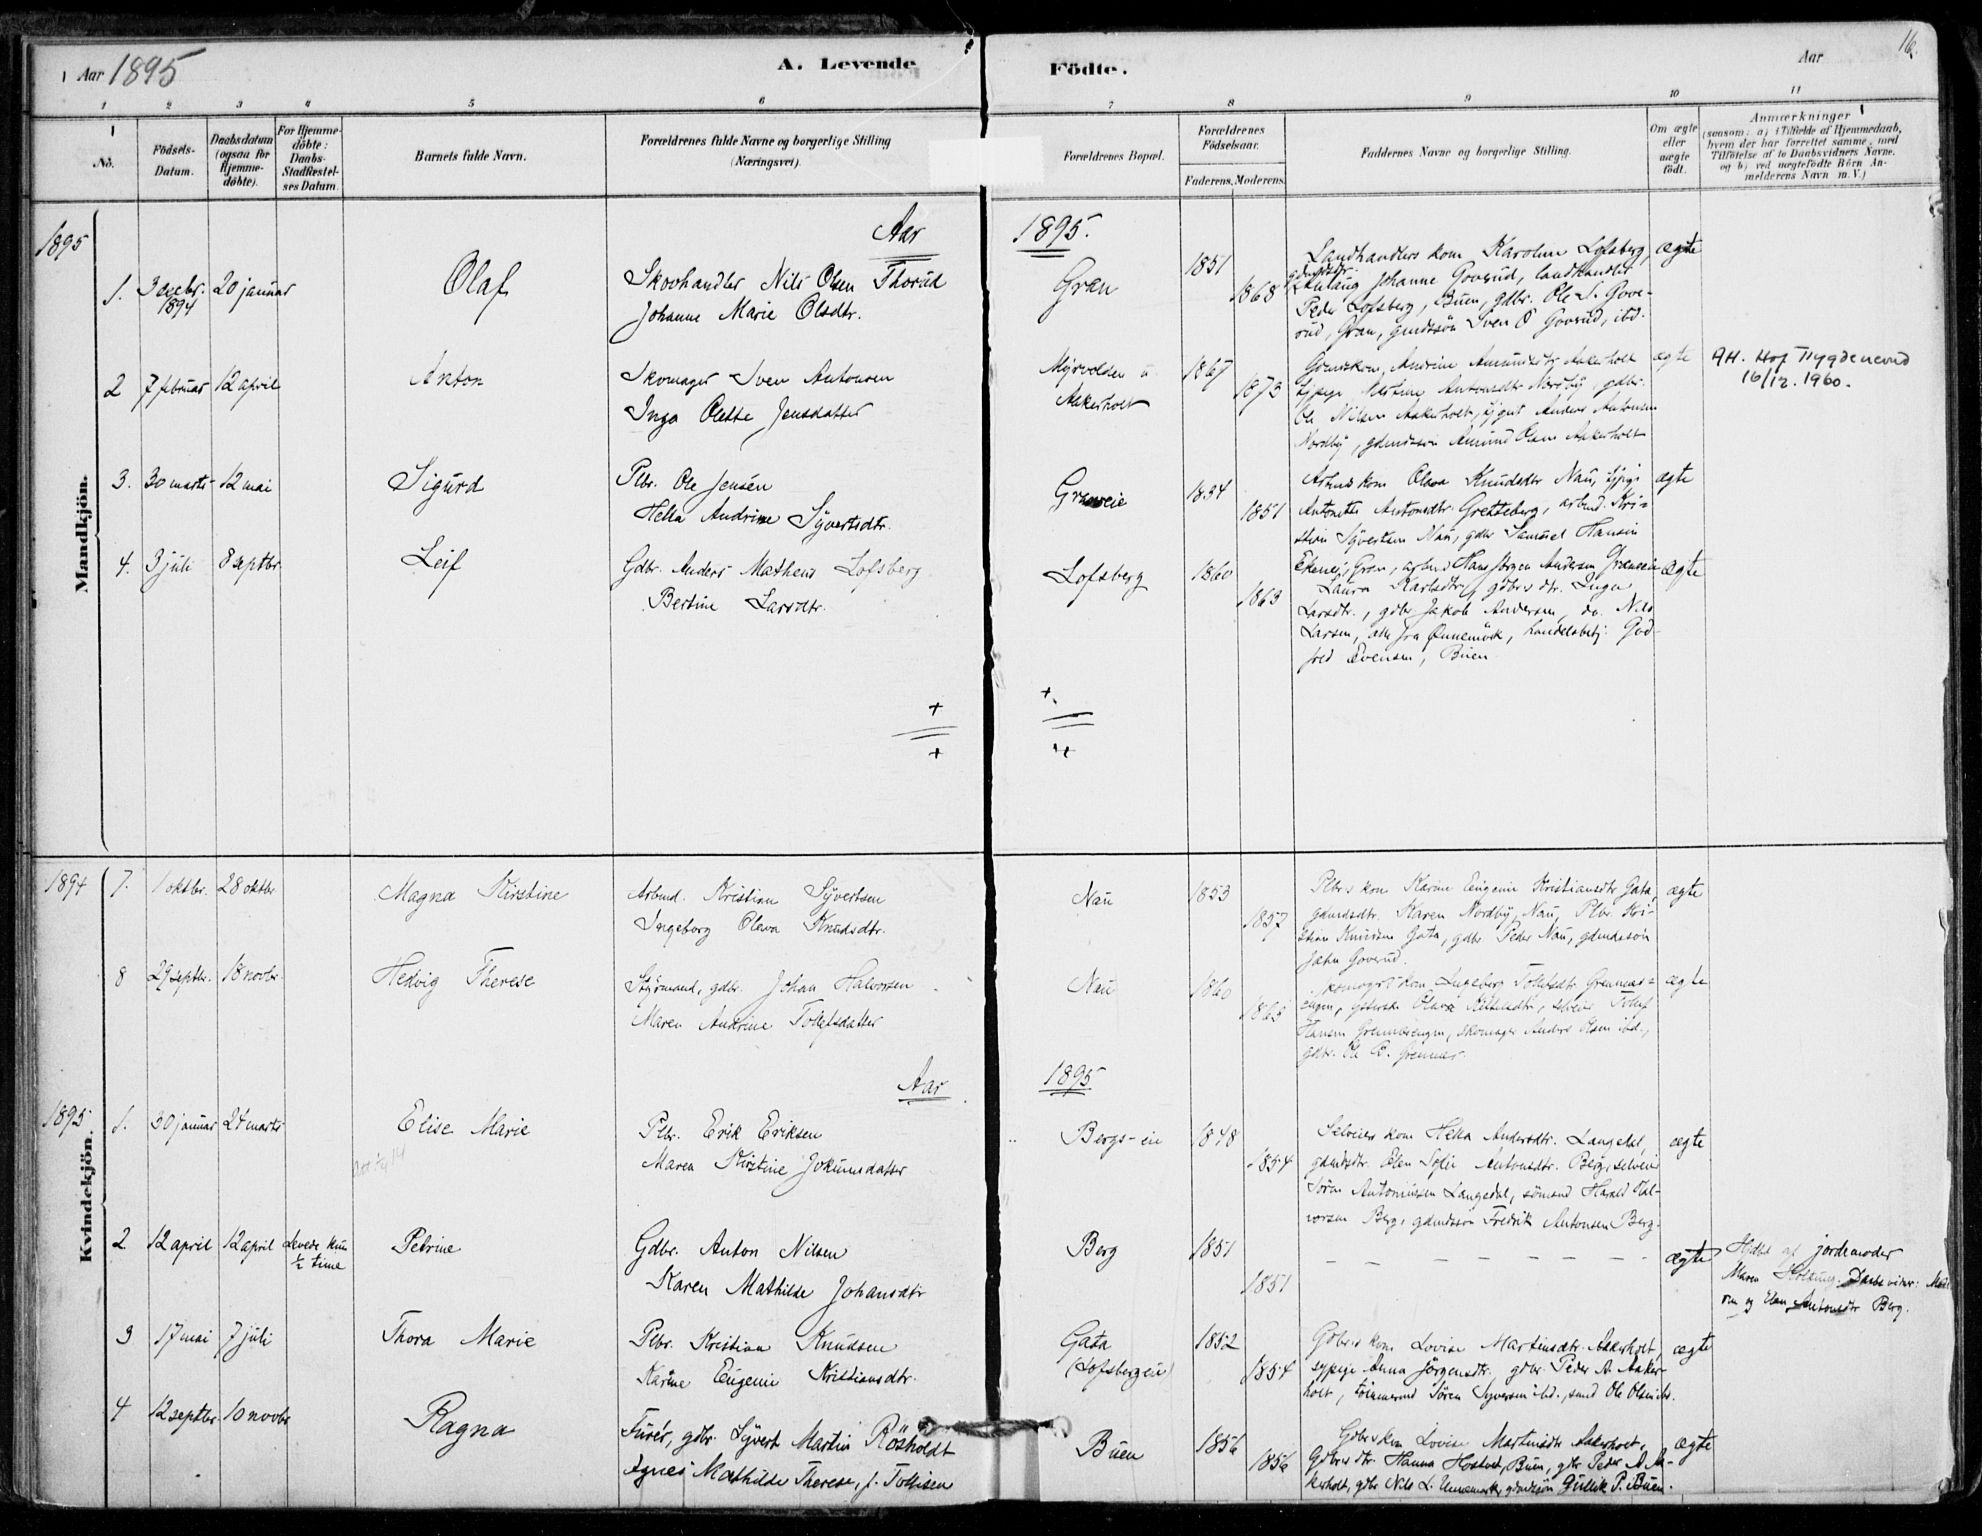 Aar 1895
A. Levende
Födte.
Aar
16.
1 2 3 4 5 6 7 8 9 10 11
No.
Födsels-
Datum.
Daabsdatum
(ogsaa for
Hjemme-
döbte).
For Hjemme-
döbte:
Daabs-
Stadfæstel-
ses Datum.
Barnets fulde Navn.
Forældrenes fulde Navne og borgerlige Stilling
(Næringsvei).
Forældrenes Bopæl.
Forældrenes
Födselsaar.
Faderens. Moderens.
Faddernes Navne og borgerlige Stilling.
Om ægte
eller
uægte
födt.
Anmærkninger
(saasom: a) i Tilfælde af Hjemmedaab,
hvem der har forrettet samme, med
Tilföielse af to Daabsvidners Navne.
og b) ved uægtefödte Börn An-
melderens Navn m. V.)
Mandkjön.
1895
Aar
1895.
1. 3 decbr. 1894 20 januar
Olaf
Skovhandler Nils Olsen Thorud
Johanne Marie Olsdtr.
Gran
1851
1868
Landhandlers kone Karoline Lofsberg,
gdmdsdtr. Johanne Goverud, landhandler
Peder Lofsberg, Buen, gdbr. Ole S. Gove-
rud, Gran, gmdssön Sven O Goverud, ibd.
ægte
2 7 februar 12 april
Anton
Skomager Sven Antonsen
Inga Olette Jensdatter
Myrvolden u
Aakerholt
1867
1873
Andrine Amundsdtr Aakerholt
Antonsdtr Nordby, gdbr.
Ole Nilsen Aakerholt, Anders Antonsen
Nordby, gdmdssön Amund Olsen Aakerholt
ægte
AH. Hof Trygdenevnd
16/12. 1960.
3. 30 marts 12 mai
Sigurd
Plbr. Ole Jensen
Hella Andrine Syvertsdtr.
Graneie
1834
1851
kone Oleva Knudsdtr Nau, typige
Antonette Antonsdtr. Gretteberg, arbmd. Kri-
stian Syvertsen Nau, gdbr Samuel Hansen
ægte
4. 3 juli 8 septbr
Leif
Gdbr. Anders Mathens Lofsberg
Bertine Larsdtr.
Lofsberg
1860
1863
Ekenes, Gran, arbmd Hans Jörgen Andersen Graneeie
Laura Karlsdtr, gdbrs dtr. Inga
Larsdtr., gdbr Jakob Andersen, do. Nils
Larsen, alle fra Önnemörk, handelsbetj. God-
fred Evensen, Buen
ægte
Kvindekjön.
1894
7. 1 oktbr. 28 oktbr
Magna Kirstine
Arbmd. Kristian Syvertsen
Ingeborg Oleva Knudsdtr.
Nau
1853
1857
Plbrs kone Karine Eugenie Kristiansdtr Gata,
gdmdsdtr. Karen Nordby, Nau, Plbr. Kri-
stian Knudsen Gata, gdbr Peder Nau, gdmdssön
Goverud.
ægte
8 29 septbr. 18 novbr.
Hedvig Therese
Styrmand, gdbr. Johan Halvorsen
Maren Andrine Tollefsdatter
Nau
1860
1865
kone Ingeborg Tollefsdtr. Grennes-
engen, selveier Tollef
Hansen Grennesengen, skomager Anders Olsen ibd.,
gdbr. Ole B. Grennes.
ægte
Aar
1895
1895
1. 30 januar 24 marts
Elise Marie
Plbr. Erik Eriksen
Maren Kirstine Jokumsdatter
Bergs-eie
1848
1854
Selveiers kone Hella Andersdtr. Langedal,
gdmdsdtr. Elen Sofie Antonsdtr. Berg, selveier
Sören Antoniussen Langedal, sömand Harald Hal-
vorsen Berg, gdmdssön Fredrik Antonsen Berg.
ægte
2 12 april 12 april Levede kun
½ time
Petrine
Gdbr. Anton Nilsen
Karen Mathilde Johansdtr
Berg
1851
1851
— — — — — —
ægte
Hjdbt af jordemoder
Maren
og Elen Antonsdtr Berg.
3 17 mai 7 juli
Thora Marie
Plbr. Kristian Knudsen
Karine Eugenie Kristiansdtr.
Gata
(Lofsbergeie)
1852
1854
Gdbrs kone Lovise Martinsdtr. Aakerholt,
sypige Anna Jörgensdtr. gdbr. Peder A. Aaker-
holt, tömmermd Sören Syversen ibd., smed Ole Olsen ibd.
ægte
4 12 septbr. 10 novbr
Ragna
Furér, gdbr. Syvert Martin Rösholdt
Agnes Mathilde Therese, f. Tollisen
Buen
1856
1856
Gdbrs kone Lovise Martinsdtr Aakerholt,
Gdbrs dtr. Hanna Hostved, Buen, gbr Peder A. Aa-
kerholt, gdbr Nils L. Unnemark, gdmdssön Gullik P. Buen.
ægte